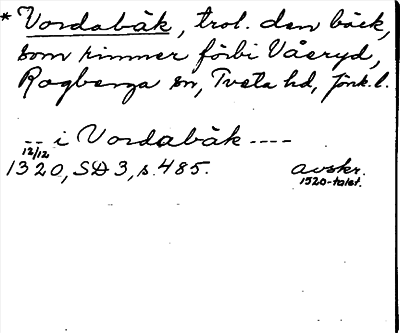 * Vordabäk, trol. den bäck,
som rinner förbi Våeryd,
Rogberga sn, Tveta hd, Jönk. l.
-- i Vordabäk ----
12/12
1320, SD 3, s. 485. avskr.
1520-talet.